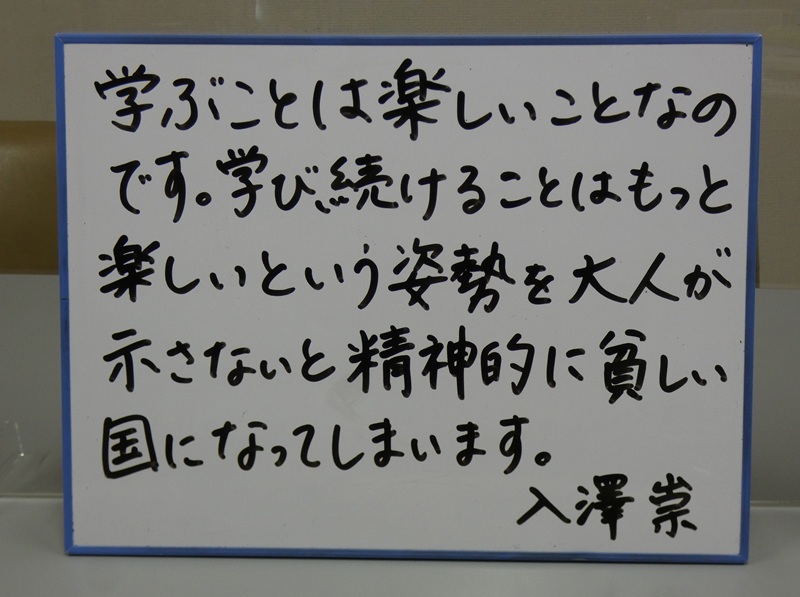 学ぶことは楽しいことなの
です。学び続けることはもっと
楽しいという姿勢を大人が
示さないと精神的に貧しい
国になってしまいます。
入澤 崇